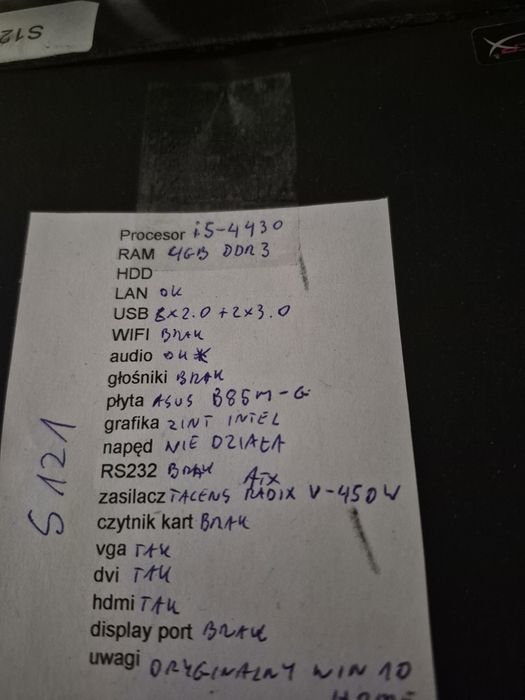 S12
Procesor i5-4430
RAM 4GB DDR3
HDD
LAN OK
USB 8x2.0 + 2x3.0
WIFI BRAK
audio OK*
głośniki BRAK
płyta ASUS B85M-G
grafika ZINT INTEL
napęd NIE DZIAŁA
RS232 BRAK
zasilacz TACENS RADIX V-450W ATX
czytnik kart BRAK
vga TAK
dvi TAK
hdmi TAK
display port BRAK
uwagi ORYGINALNY WIN 10
HOME
S 121